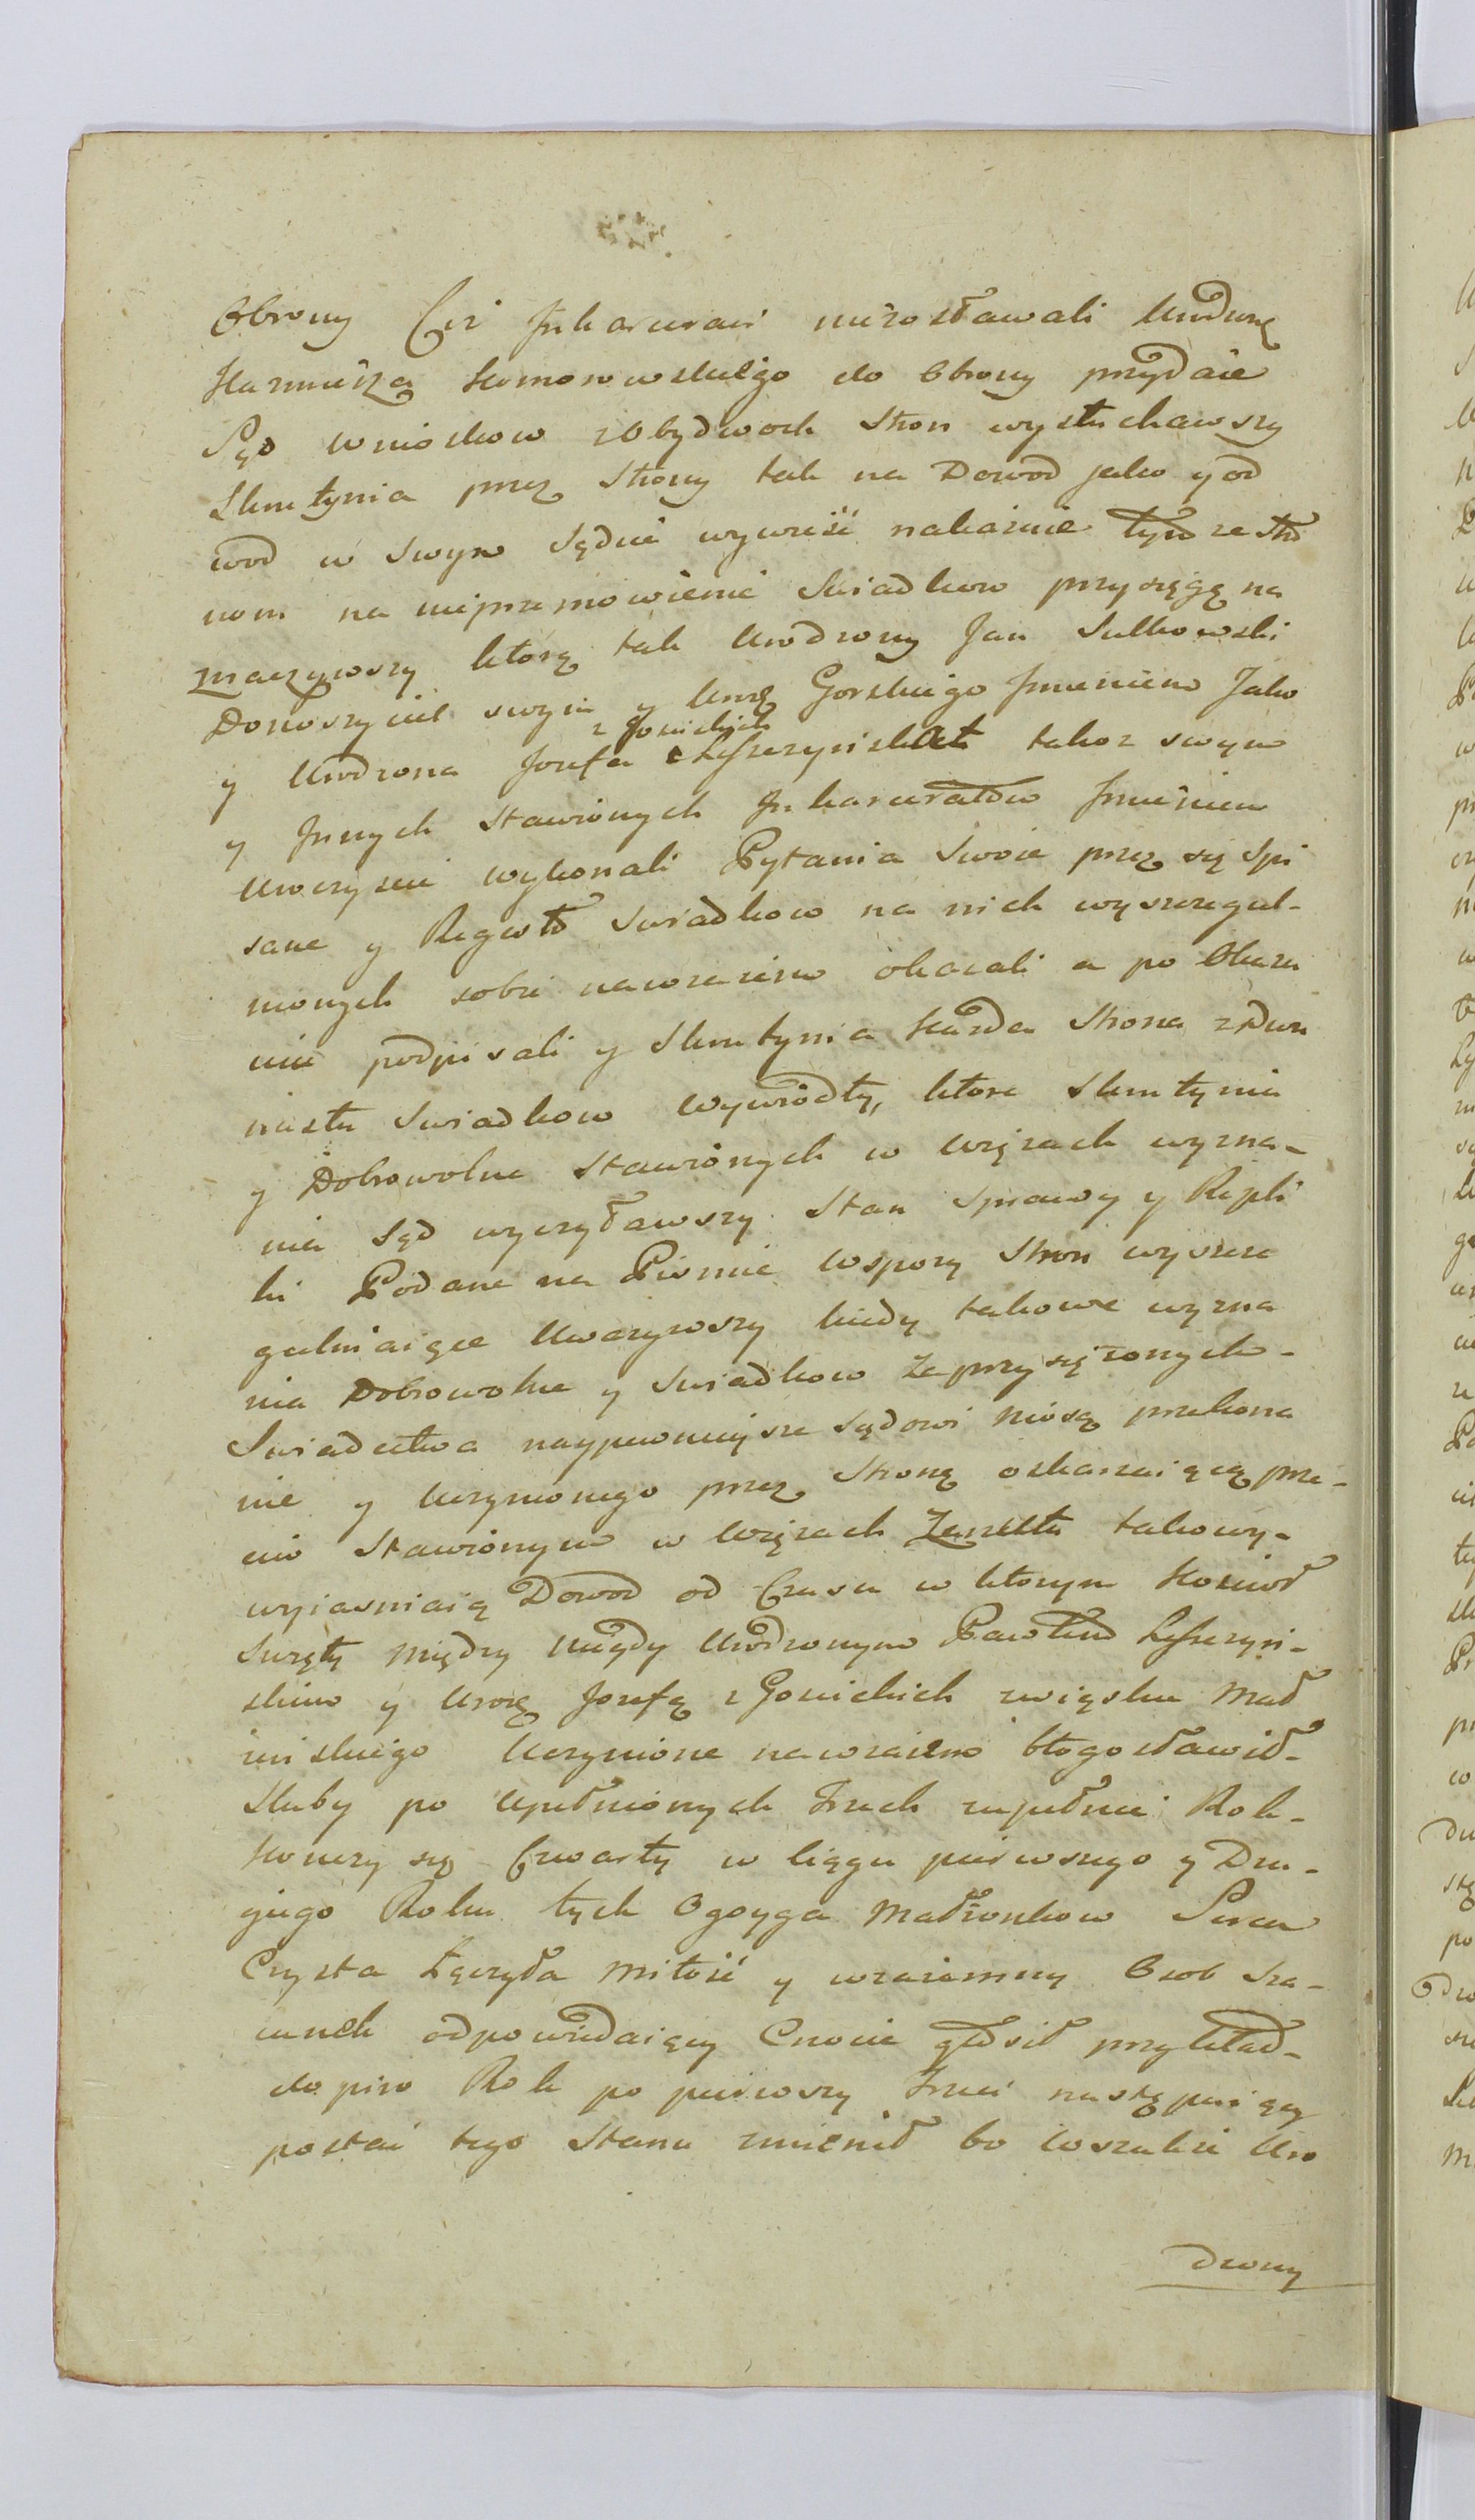 Obrony Ciż Inkarceraci niezostawali Urodzonę
Kazmierza Komorowskiego do Obrony przydaie
Sąd wnioskow zObydwoch Stron wysłuchawszy
Skrutynia przez Strony tak na Dowod jako y od
wod w swym Sądzie wywieść nakazuie tym ze Stro
nom na nieprzemowienie Swiadkow przysięgę na
znaczywszy którą tak Urodzony Jan Sulkowski
Donosziciel swym y Urzę Gorskiego Imieniem Jako
y Urodzona Jozefa z Gonickich Leszczynska takoz swym
y Innych Stawionych Inkarceratow Imieniem
Uroczyscie wykonali Pytania Swoie przez się Spi
sane y Regestr Swiadkow na nich wyszczegul-
nionych sobie nawzaiem okazali a po Okaza
niu podpisali y Skrutynia Każda Strona zDwu
nastu Swiadkow Wywiodły, które Skrutynia
y Dobrowolne Stawionych w Więzach wyzna-
nia Sąd wyczytawszy Stan Sprawy y Repli
ki Podane na Pismie Wspory Stron wyszcze
gulniaiące Uwazywszy kiedy takowe wyzna
nia Dobrowolne y Swiadkow Zaprzysiężonych-
Swiadectwa naypewnieysze Sądowi niosą przekona
nie y Uczynionego przez Stronę oskarzaiącą prze-
ciw Stawionym w Więzach Zarzutu takowy-
wyiasniaią Dowod od Czasu w ktorym Kosciół
Swięty między niegdy Urodzonym Pawłem Leszczyn-
skim y Urorę Jozefą z Gonickich związku Mał
żenskiego Uczynione nawzaiem błogosławił-
Sluby po Upełnionych Trzech zupełnie Rok-
Konczy się Czwarty w ciągu pierwszego y Dru-
giego Roku tych Oboyga Małżonkow Serca
Czysta Łączyła Miłość y wzaiemny Osob Sza-
cunek odpowiedaiący Cnocie głosił przykład-
dopiro Rok po pierwszy Trzeci następuiący
postać tego Stanu zmienił bo Wszakże Uro
dzony